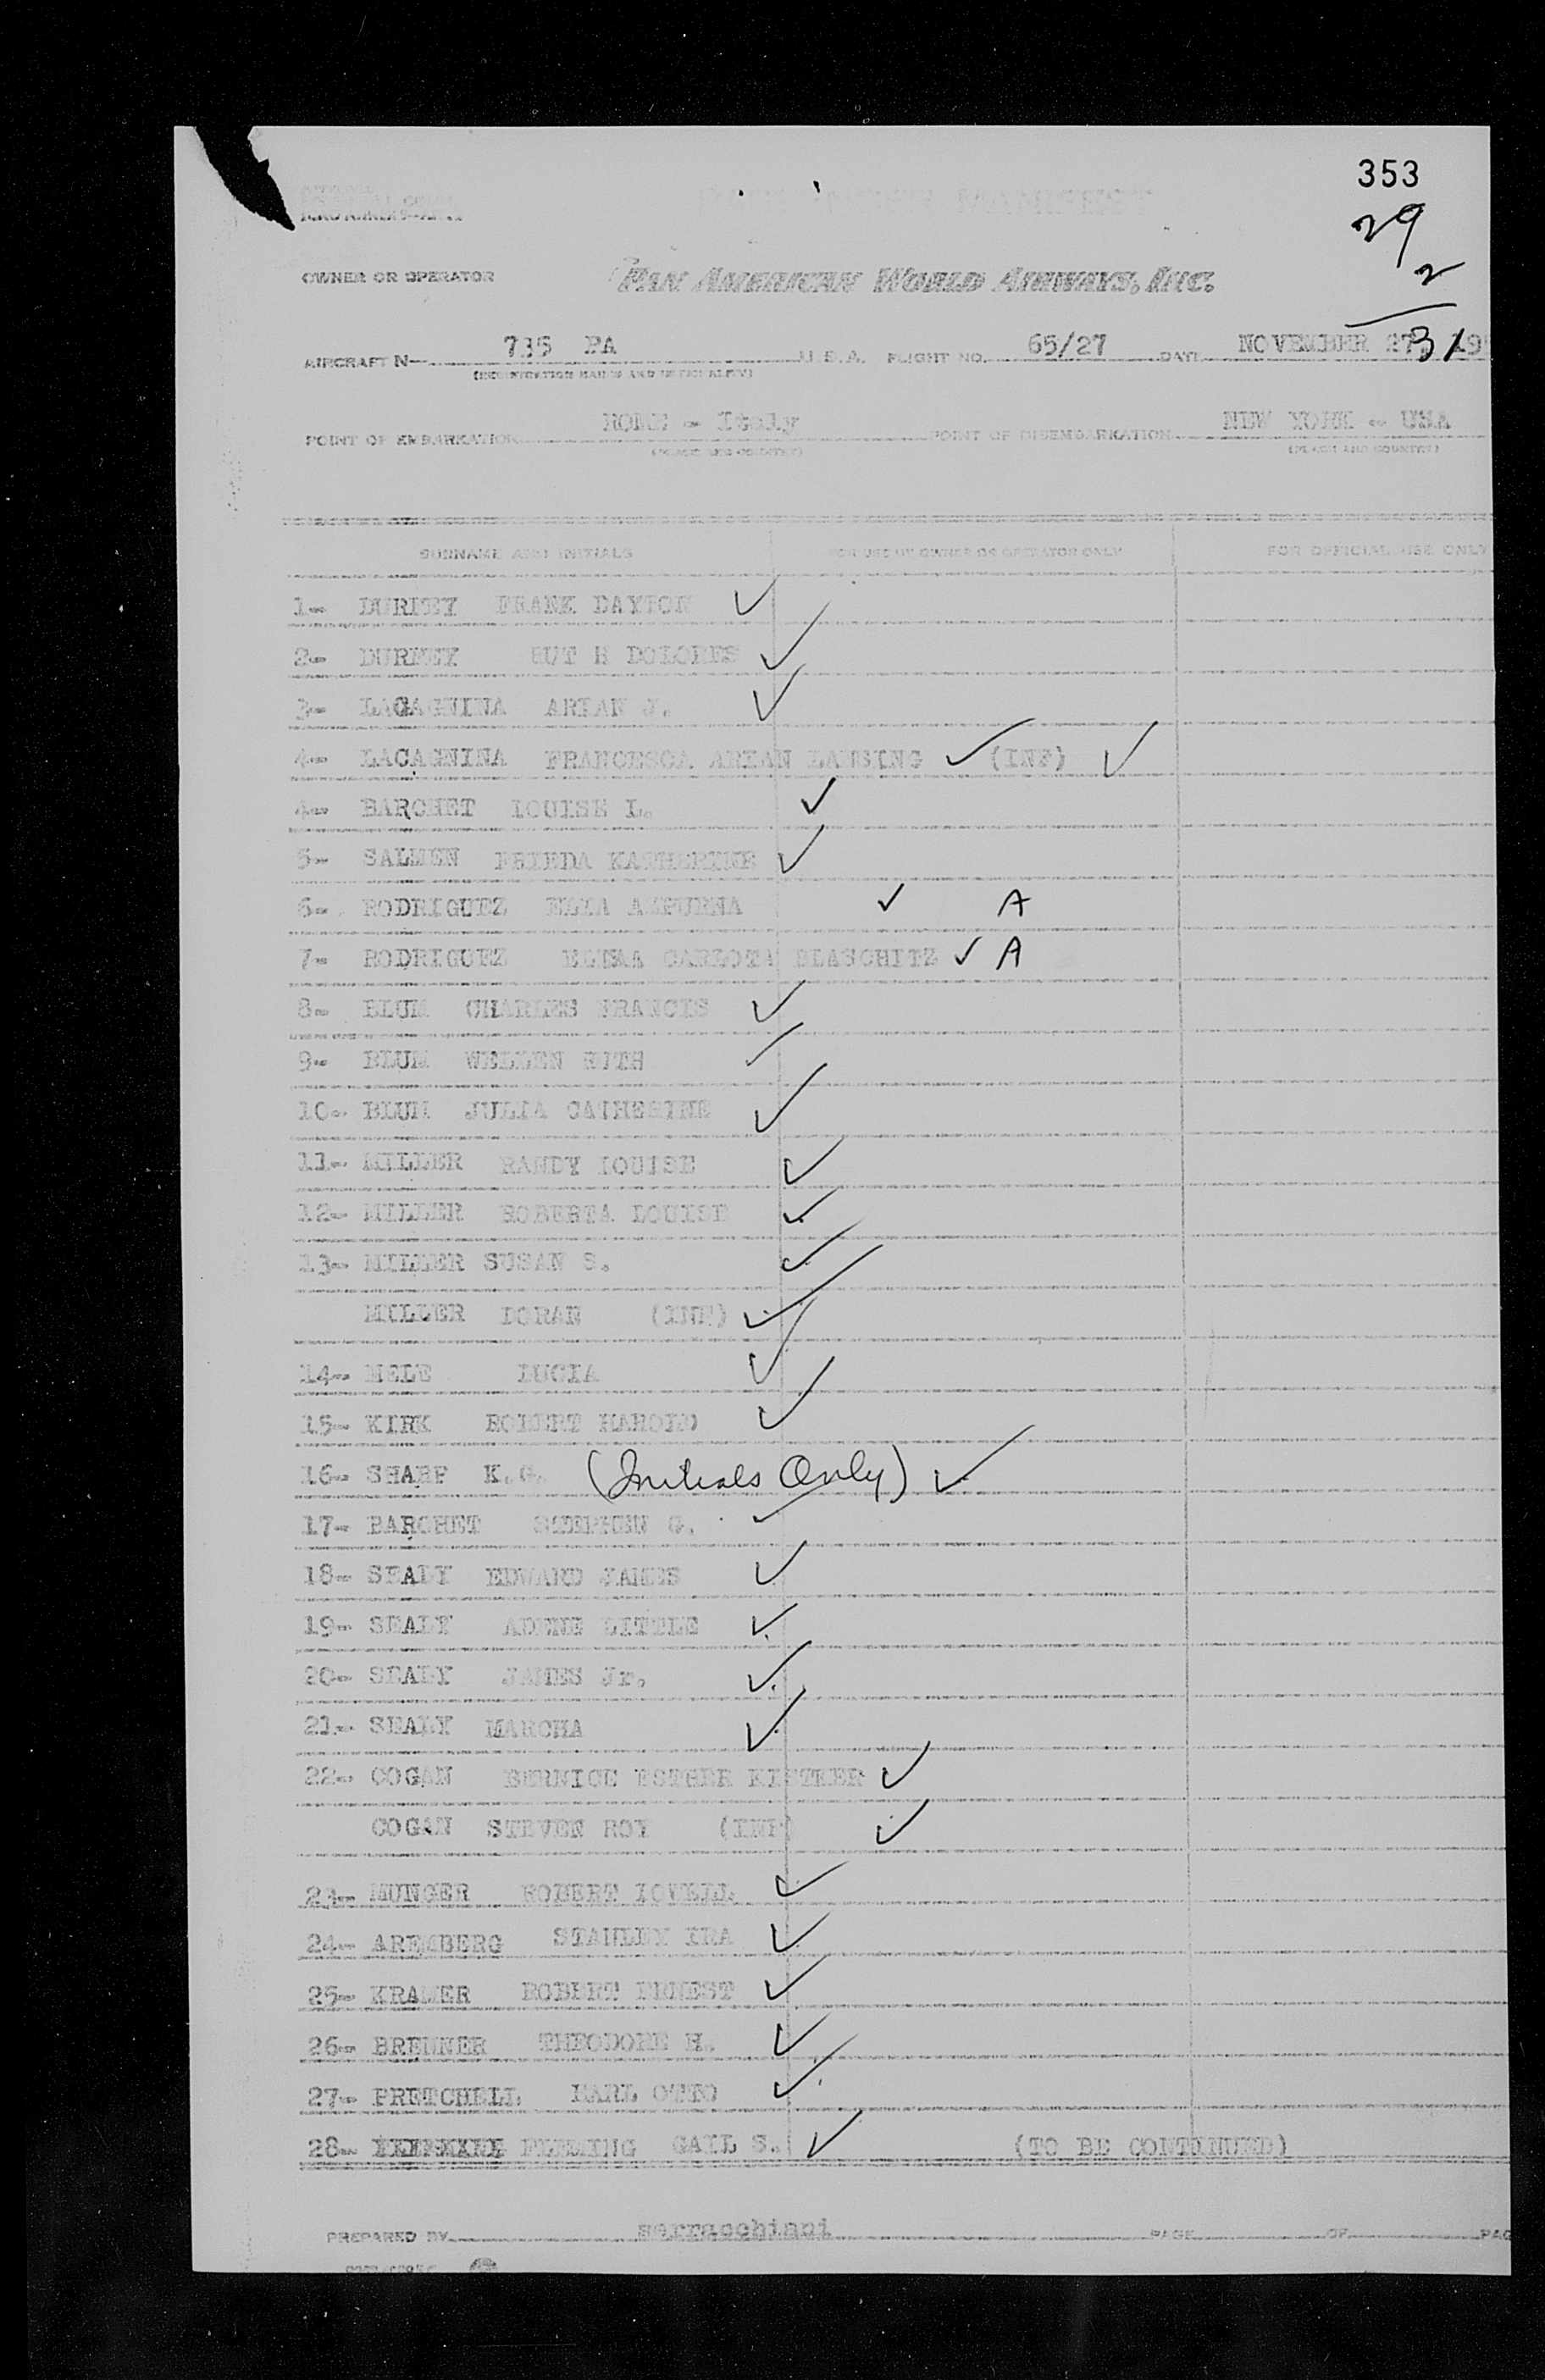 353
29
2
31
PASSENGER MANIFEST
OWNER OR OPERATOR PAN AMERICAN WORLD AIRWAYS, INC.
AIRCRAFT N- 735 PA U.S.A. FLIGHT NO. 65/27 DATE NOVEMBER 27, 19
POINT OF EMBARKATION ROME - Italy POINT OF DISEMBARKATION NEW YORK - USA
(PLACE AND COUNTRY) (PLACE AND COUNTRY)
SURNAME AND INITIALS FOR USE BY OWNER OR OPERATOR ONLY FOR OFFICIAL USE ONLY
1- DURFEY FRANK DAYTON ✓
2- DURFEY RUT H DOLORES ✓
3- LACAGNINA ARIAN J. ✓
4- LACAGNINA FRANCESCA ARIAN LANSING ✓ (INF) ✓
4- BARCHET LOUISE L. ✓
5- SALMEN FRIEDA KATHERINE ✓
6- RODRIGUEZ ELIA AZPURNA ✓ A
7- RODRIGUEZ CARLOTA BLASCHITZ ✓ A
8- BLUM CHARLES FRANCIS ✓
9- BLUM WELLEN RUTH ✓
10- BLUM JULIA CATHERINE ✓
11- MILLER RANDY LOUISE ✓
12- MILLER ROBERTA LOUISE ✓
13- MILLER SUSAN S. ✓
MILLER LORAN (INF) ✓
14- MELE LUCIA ✓
15- KIRK ROBERT HAROLD ✓
16- SHARP K.G. (Initials Only) ✓
17- BARCHET STEPHEN G. ✓
18- SEALY EDWARD JAMES ✓
19- SEALY ADENE LITTLE ✓
20- SEALY JAMES Jr. ✓
21- SEALY MARCHA ✓
22- COGAN BERNICE ESTHER ✓
COGAN STEVEN ROY (INF) ✓
23- MUNGER ROBERT LOWELL ✓
24- AREMBERG STANLEY IRA ✓
25- KRAMER ROBERT ERNEST ✓
26- BRENNER THEODORE H. ✓
27- PRETCHELL KARL OTTO ✓
28- FLEMING GAIL S. ✓ (TO BE CONTINUED)
PREPARED BY serracchiani PAGE OF PAG